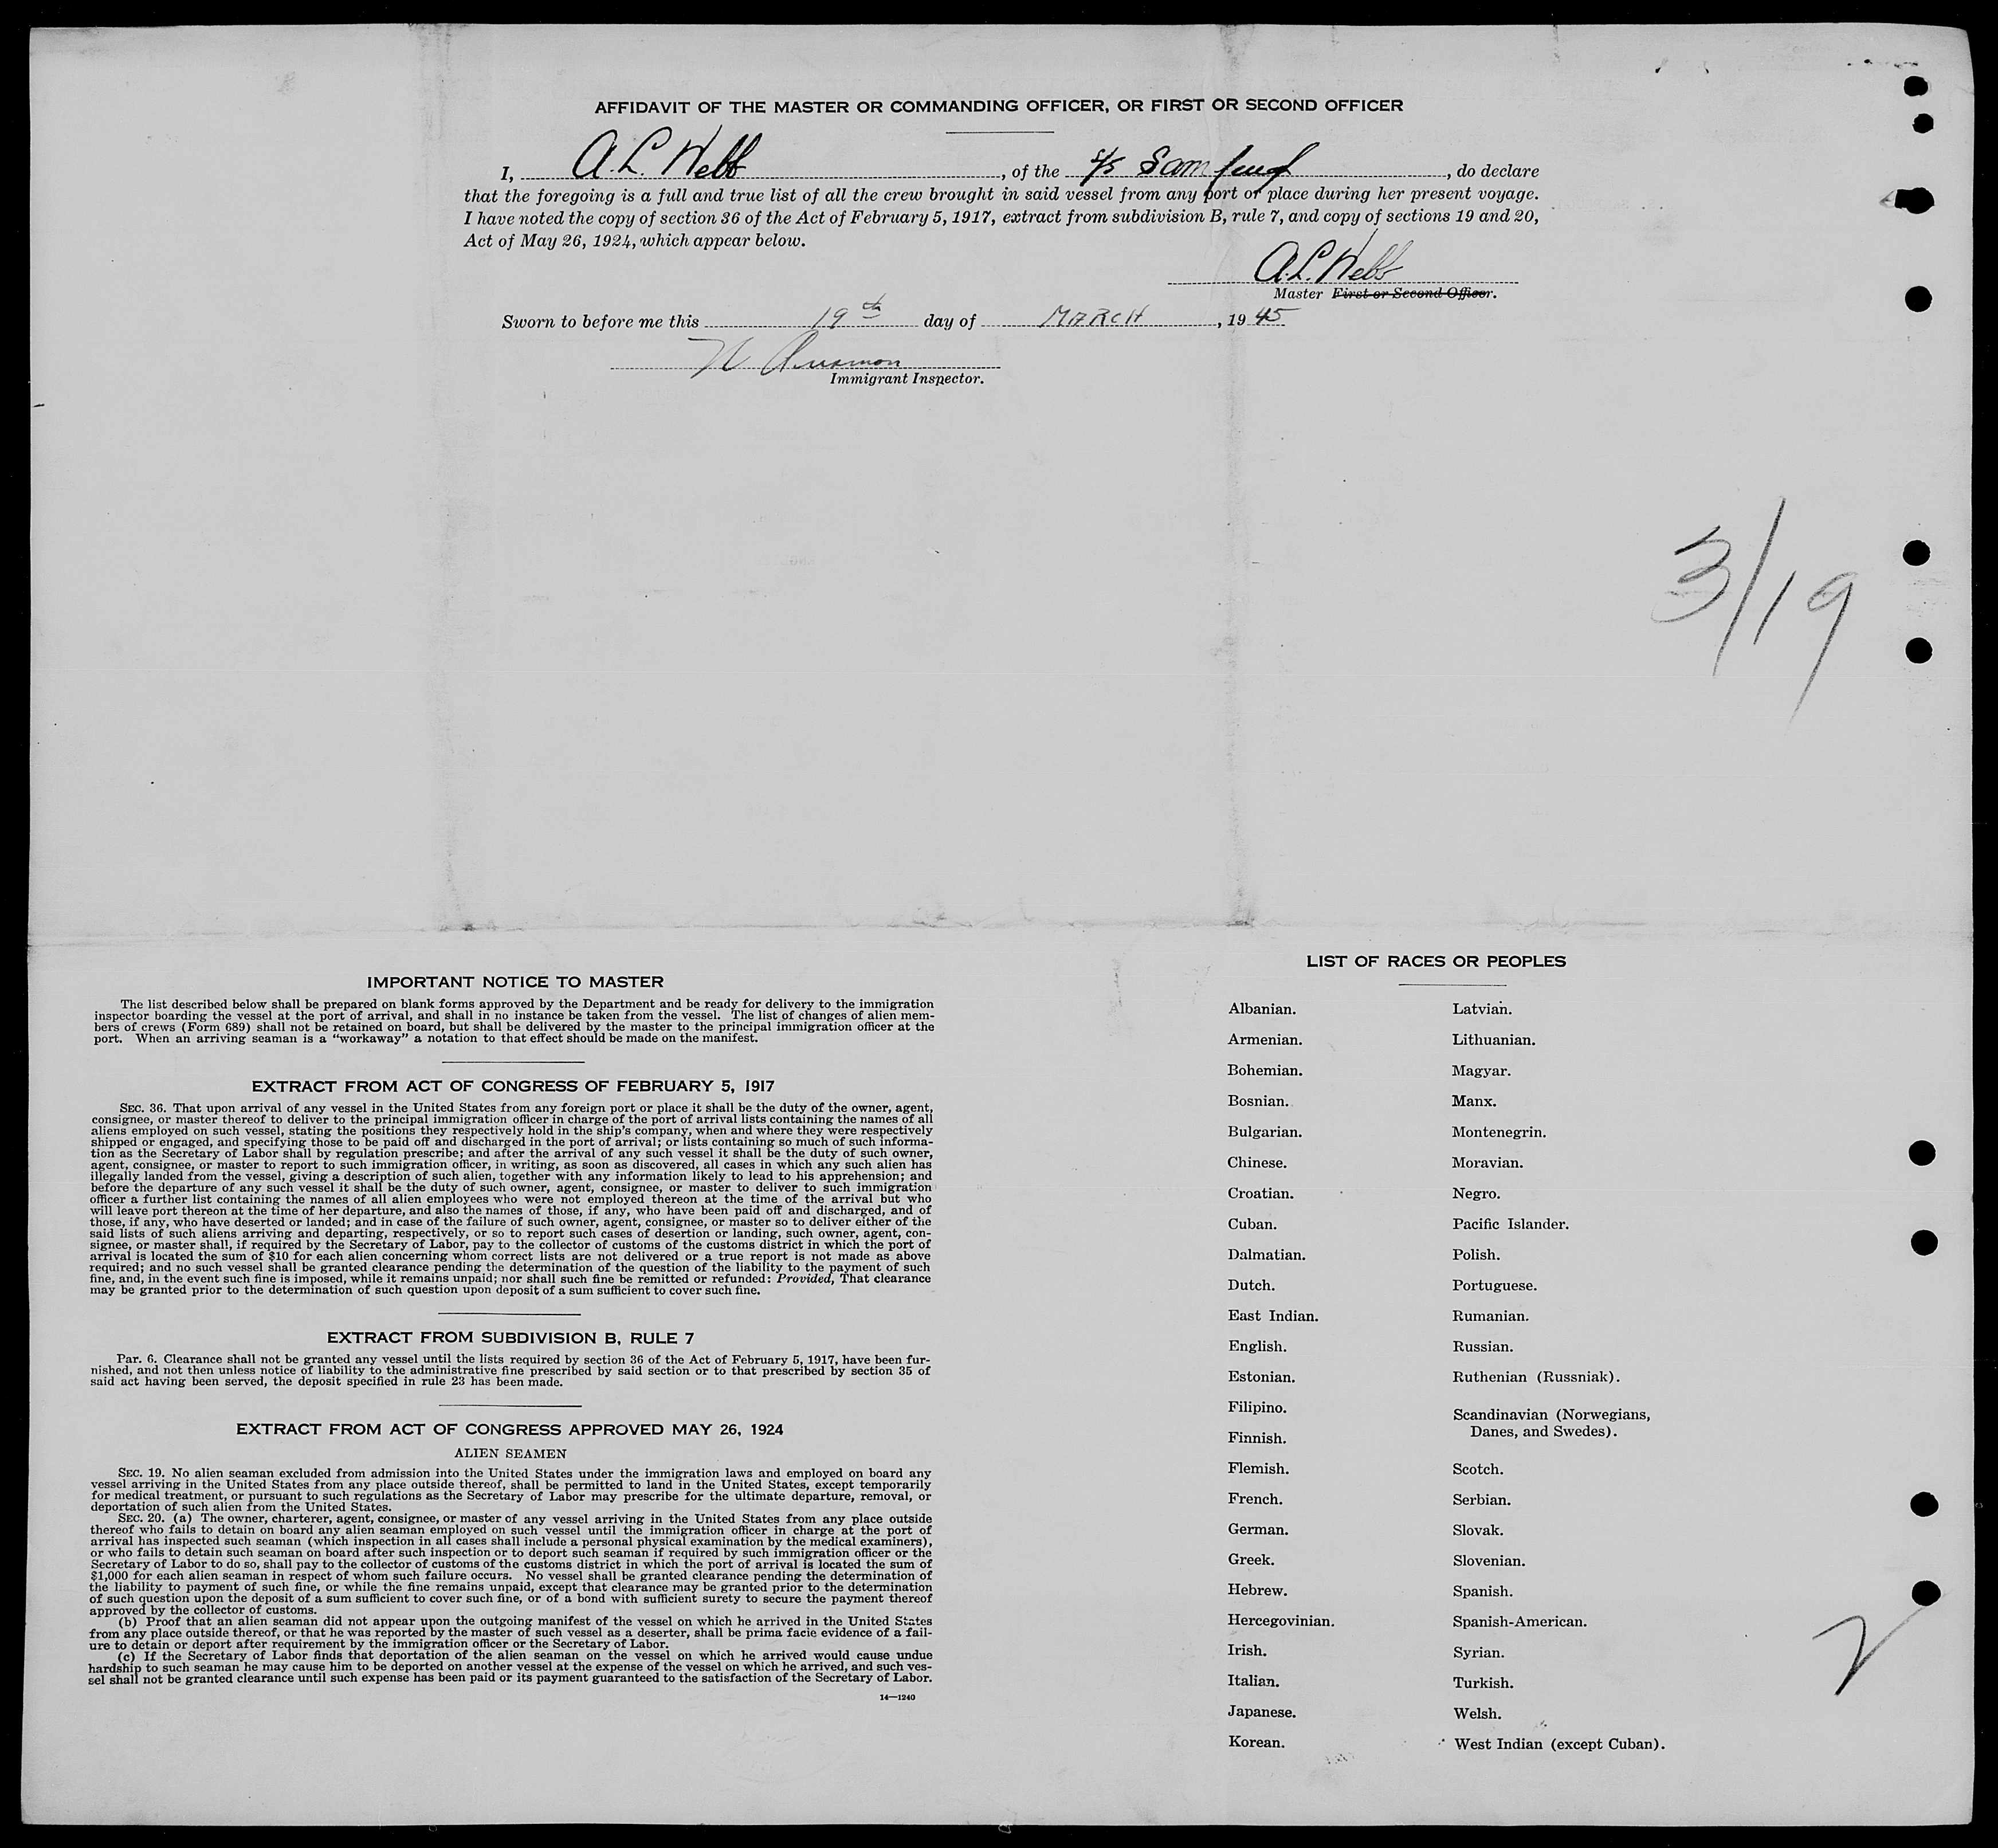 AFFIDAVIT OF THE MASTER OR COMMANDING OFFICER, OR FIRST OR SECOND OFFICER
I, A. L. Webb, of the S/S Sam, do declare
that the foregoing is a full and true list of all the crew brought in said vessel from any port or place during her present voyage.
I have noted the copy of section 36 of the Act of February 5, 1917, extract from subdivision B, rule 7, and copy of sections 19 and 20,
Act of May 26, 1924, which appear below.
A. L. Webb
Master First or Second Officer.
Sworn to before me this 19th day of MARCH, 1945
Immigrant Inspector.
3/19
IMPORTANT NOTICE TO MASTER
The list described below shall be prepared on blank forms approved by the Department and be ready for delivery to the immigration
inspector boarding the vessel at the port of arrival, and shall in no instance be taken from the vessel. The list of changes of alien mem-
bers of crews (Form 689) shall not be retained on board, but shall be delivered by the master to the principal immigration officer at the
port. When an arriving seaman is a "workaway" a notation to that effect should be made on the manifest.
EXTRACT FROM ACT OF CONGRESS OF FEBRUARY 5, 1917
SEC. 36. That upon arrival of any vessel in the United States from any foreign port or place it shall be the duty of the owner, agent,
consignee, or master thereof to deliver to the principal immigration officer in charge of the port of arrival lists containing the names of all
aliens employed on such vessel, stating the positions they respectively hold in the ship's company, when and where they were respectively
shipped or engaged, and specifying those to be paid off and discharged in the port of arrival; or lists containing so much of such informa-
tion as the Secretary of Labor shall by regulation prescribe; and after the arrival of any such vessel it shall be the duty of such owner,
agent, consignee, or master to report to such immigration officer, in writing, as soon as discovered, all cases in which any such alien has
illegally landed from the vessel, giving a description of such alien, together with any information likely to lead to his apprehension; and
before the departure of any such vessel it shall be the duty of such owner, agent, consignee, or master to deliver to such immigration
officer a further list containing the names of all alien employees who were not employed thereon at the time of the arrival but who
will leave port thereon at the time of her departure, and also the names of those, if any, who have been paid off and discharged, and of
those, if any, who have deserted or landed; and in case of the failure of such owner, agent, consignee, or master so to deliver either of the
said lists of such aliens arriving and departing, respectively, or so to report such cases of desertion or landing, such owner, agent, con-
signee, or master shall, if required by the Secretary of Labor, pay to the collector of customs of the customs district in which the port of
arrival is located the sum of $10 for each alien concerning whom correct lists are not delivered or a true report is not made as above
required; and no such vessel shall be granted clearance pending the determination of the question of the liability to the payment of such
fine, and, in the event such fine is imposed, while it remains unpaid; nor shall such fine be remitted or refunded: Provided, That clearance
may be granted prior to the determination of such question upon deposit of a sum sufficient to cover such fine.
EXTRACT FROM SUBDIVISION B, RULE 7
Par. 6. Clearance shall not be granted any vessel until the lists required by section 36 of the Act of February 5, 1917, have been fur-
nished, and not then unless notice of liability to the administrative fine prescribed by said section or to that prescribed by section 35 of
said act having been served, the deposit specified in rule 23 has been made.
EXTRACT FROM ACT OF CONGRESS APPROVED MAY 26, 1924
ALIEN SEAMEN
SEC. 19. No alien seaman excluded from admission into the United States under the immigration laws and employed on board any
vessel arriving in the United States from any place outside thereof, shall be permitted to land in the United States, except temporarily
for medical treatment, or pursuant to such regulations as the Secretary of Labor may prescribe for the ultimate departure, removal, or
deportation of such alien from the United States.
SEC. 20. (a) The owner, charterer, agent, consignee, or master of any vessel arriving in the United States from any place outside
thereof who fails to detain on board any alien seaman employed on such vessel until the immigration officer in charge at the port of
arrival has inspected such seaman (which inspection in all cases shall include a personal physical examination by the medical examiners),
or who fails to detain such seaman on board after such inspection or to deport such seaman if required by such immigration officer or the
Secretary of Labor to do so, shall pay to the collector of customs of the customs district in which the port of arrival is located the sum of
$1,000 for each alien seaman in respect of whom such failure occurs. No vessel shall be granted clearance pending the determination of
the liability to payment of such fine, or while the fine remains unpaid, except that clearance may be granted prior to the determination
of such question upon the deposit of a sum sufficient to cover such fine, or of a bond with sufficient surety to secure the payment thereof
approved by the collector of customs.
(b) Proof that an alien seaman did not appear upon the outgoing manifest of the vessel on which he arrived in the United States
from any place outside thereof, or that he was reported by the master of such vessel as a deserter, shall be prima facie evidence of a fail-
ure to detain or deport after requirement by the immigration officer or the Secretary of Labor.
(c) If the Secretary of Labor finds that deportation of the alien seaman on the vessel on which he arrived would cause undue
hardship to such seaman he may cause him to be deported on another vessel at the expense of the vessel on which he arrived, and such ves-
sel shall not be granted clearance until such expense has been paid or its payment guaranteed to the satisfaction of the Secretary of Labor.
14—1240
LIST OF RACES OR PEOPLES
Albanian.
Armenian.
Bohemian.
Bosnian.
Bulgarian.
Chinese.
Croatian.
Cuban.
Dalmatian.
Dutch.
East Indian.
English.
Estonian.
Filipino.
Finnish.
Flemish.
French.
German.
Greek.
Hebrew.
Hercegovinian.
Irish.
Italian.
Japanese.
Korean.
Latvian.
Lithuanian.
Magyar.
Manx.
Montenegrin.
Moravian.
Negro.
Pacific Islander.
Polish.
Portuguese.
Rumanian.
Russian.
Ruthenian (Russniak).
Scandinavian (Norwegians,
Danes, and Swedes).
Scotch.
Serbian.
Slovak.
Slovenian.
Spanish.
Spanish-American.
Syrian.
Turkish.
Welsh.
West Indian (except Cuban).
2